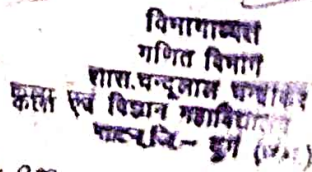 विभागाध्यक्ष
गणित विभाग
शास. चन्दूलाल चन्द्राकर
कला एवं विज्ञान महाविद्यालय
पाटन, जि.- दुर्ग